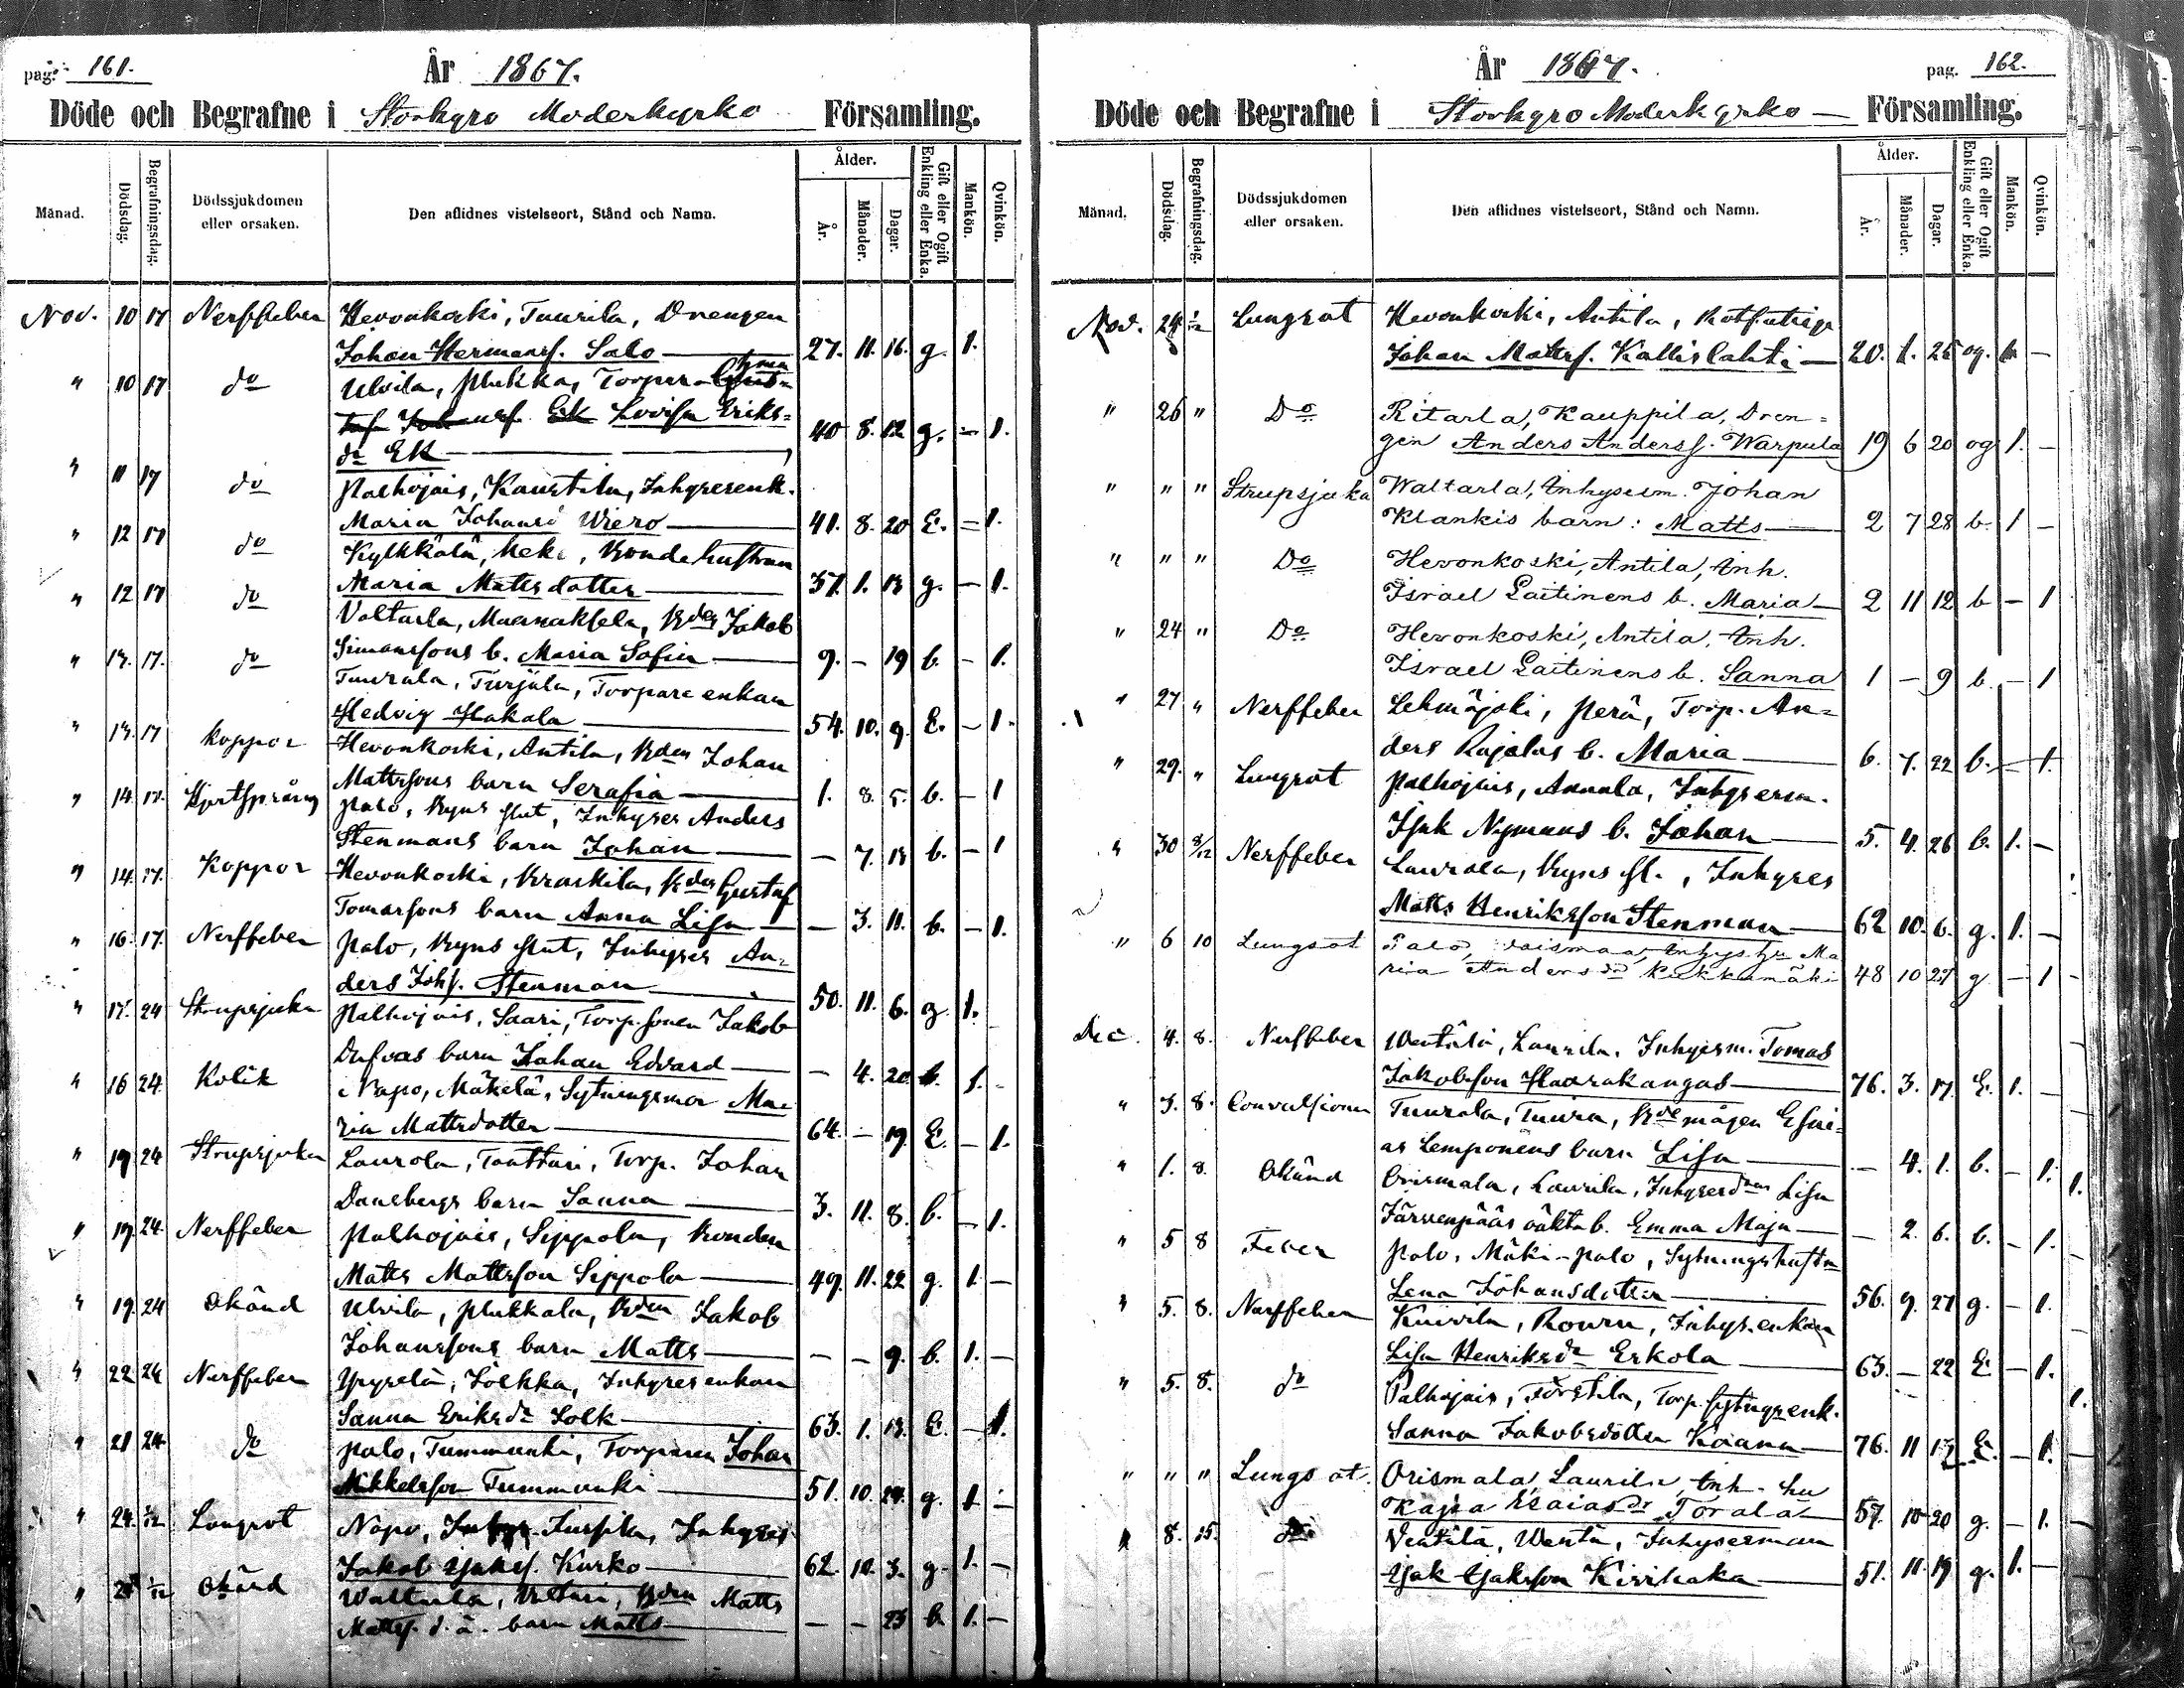 pag. 161.
År 1867.
Döde och Begrafne i Storkyro Moderkyrko Församling.
Månad.
Dödsdag.
Begrafningsdag.
Dödssjukdomen eller orsaken.
Den aflidnes vistelseort, Stånd och Namn.
Ålder.
År.
Månader.
Dagar.
Gift eller Ogift Enkling eller Enka.
Mankön.
Qvinkön.
Nov. 10 17 Nerffeber Hevonkoski, Tuurila, Drengen
Johan Hermansf. Salo — 27. 11. 16. g. 1.
" 10 17 do Ulvila, Pukka, Torpar
Lovisa Eriks=
dr Ek — 40 8. 12 g. — 1.
" 11 17 do Palhojais, Kaustila, Inhysesenk.
Maria Johansd Wiero — 41. 8. 20 E. — 1.
" 12 17 do Kylkkälä, Bondehustrun
Maria Mattsdotter — 37. 1. 13 g. — 1.
" 12 17 do Valtarla, Bden Jakob
Simanssons b. Maria Sofia — 9. — 19 b. — 1.
" 17. do Tuurala, Torpare enkan
Hedvig Hakala — 54. 10. 9. E. — 1.
" 17 Koppor Hevonkoski, Antila, Bden Johan
Mattssons barn Serafia — 1. 8. 5. b. — 1
" 14 17. Hjertsprång Palo, Inhyses Anders
Stenmans barn Johan — — 7. 13 b. — 1
" 14. 17. Koppor Hevonkoski, Bden Gustaf
Tomassons barn Anna Lisa — — 3. 11. b. — 1.
" 16. 17. Nerffeber Palo, Inhyses An=
ders Johs. Stenman — 50. 11. 6. g. 1.
" 17. 24 Strupsjuka Palhojais, Saari, Torp.sonen Jakob
barn Johan Edvard — — 4. 20. b. 1. -
" 16 24 Kolik Napo, Mäkelä, Sytningsmor Ma=
ria Mattsdotter — 64. — 19. E. — 1.
" 19 24 Strupsjuka Laurola, Torp. Johan
Danebergs barn Sanna — 3. 11. 8. b. — 1.
" 19. 24. Nerffeber Palhojais, Sippola, Bonden
Matts Mattsson Sippola — 49. 11. 22 g. 1. —
" 19. 24 Okänd Ulvila, Pukkala, Bden Jakob
Johanssons barn Matts — — — 9. b. 1. —
" 22 24 Nerffeber Inhyses enkan
Sanna Eriksdr Solk — 63. 1. 13. E. — 1.
" 21 24 do Palo, Tummunki, Torparen Johan
Mikkelsson Tummunki — 51. 10. 24. g. 1. —
" 24. 1/12 Lungsot Napo, Jussila, Inhyses
Jakob Kurko — 62. 10. 3. g. 1. —
" 1/12 Okänd Waltarla, Bden Matts
Mattss. d. ä. barn Matts — — — 23 b. 1. —
År 1867.
pag. 162.
Döde och Begrafne i Storkyro Moderkyrko — Församling.
Månad.
Dödsdag.
Begrafningsdag.
Dödssjukdomen eller orsaken.
Den aflidnes vistelseort, Stånd och Namn.
Ålder.
År.
Månader.
Dagar.
Gift eller Ogift Enkling eller Enka.
Mankön.
Qvinkön.
Nov. 24 1/12 Lungsot Hevonkoski, Antila, Rotfattige
Johan Mattss. Kallislahti — 20. 1. 25 og. 1. —
" 26 " Do Ritarla, Kauppila, Dren=
gen Anders Anderss. Warpula 19 6 20 og 1. —
" " " Strupsjuka Waltarla, Inhysesm. Johan
Klankis barn: Matts — 2 7 28 b. 1 —
" " " Do Hevonkoski, Antila, Inh.
Israel Laitinens b. Maria — 2 11 12 b — 1
" 24 " Do Hevonkoski, Antila, Inh.
Israel Laitinens b. Sanna 1 — 9 b. — 1
" 27 " Nerffeber Lehmäjoki, Perä, Torp. An=
ders Rajalas b. Maria — 6. 7. 22 b. — 1.
" 29. " Lungsot Palhojais, Annala, Inhysesm.
Isak Nymans b. Johan — 5. 4. 26 b. 1. —
" 30 8/12 Nerffeber Laurola, Byns , Inhyses
Matts Henriksson Stenman — 62 10. 6. g. 1. —
" 6 10 Lungsot Palo, Inhys hu Ma
ria Andersdr Kukkamäki 48 10 27 g — 1
Dec. 4. 8. Nerffeber Wentälä, Laurila, Inhysesm. Tomas
Jakobsson Haarakangas — 76. 3. 17. E. 1. —
" 3. 8. Convulsioner Tuurala, Tuura, Bdemågen Esai=
as Lemponens barn Lisa — — 4. 1. b. — 1.
" 1. 8. Okänd Orismala, Laurila, Inhyses Lisa
Järvenpääs oäkta b. Emma Maja — — 2. 6. b. — 1.
" 5 8 Feber Palo, Mäki-palo, Sytningshustr
Lena Johansdotter — 56. 9. 27 g. — 1.
" 5. 8. Nerffeber Kuivila, Inhys. enkan
Lisa Henriksdr Erkola — 63. — 22 E. — 1.
" 5. 8. do Palhojais, Torp. sytngsenk.
Sanna Jakobsdotter Kaana — 76. 11 13 E. — 1.
" " " Lungsot. Orismala, Laurila, Inh. hu
Kajsa Esaiasdr Torala — 57. 10 20 g. — 1.
" 8. 15. do Ventälä, Wentä, Inhysesman
Isak Isaksson Kivihaka — 51. 11. 19 g. 1. —